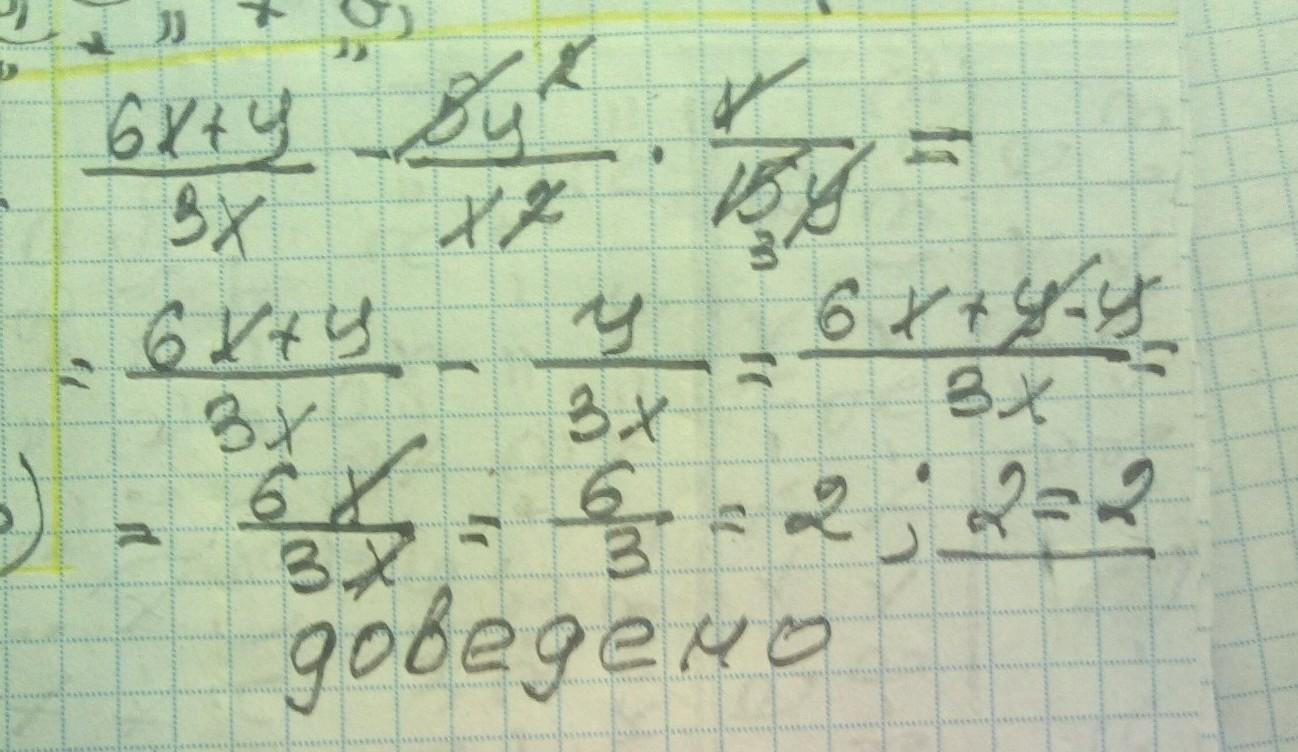 (6x+y)/(3x) - (5y²)/(x²) · x/(15y) =
3
= (6x+y)/(3x) - y/(3x) = (6x+y-y)/(3x) =
= (6x)/(3x) = 6/3 = 2 ; 2=2
доведено